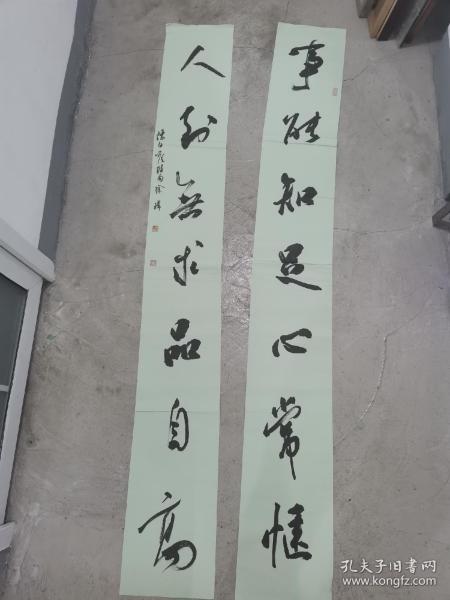 事能知足心常惬
人到無求品自高
孔夫子旧书网
www.kongfz.com